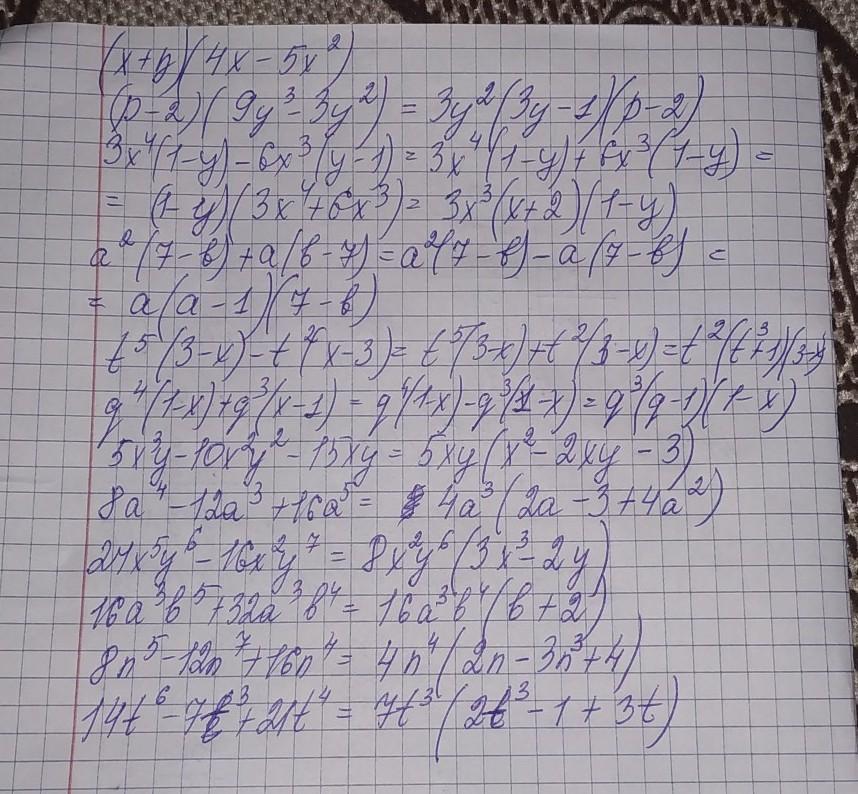 (x+y)(4x-5x²)
(p-2)(9y³-3y²) = 3y²(3y-1)(p-2)
3x⁴(1-y)-6x³(y-1)=3x⁴(1-y)+6x³(1-y)=
= (1-y)(3x⁴+6x³)= 3x³(x+2)(1-y)
a²(7-b)+a(b-7)=a²(7-b)-a(7-b) =
= a(a-1)(7-b)
t⁵(3-x)-t²(x-3)= t⁵(3-x)+t²(3-x)=t²(t³+1)(3-x)
q⁴(1-x)+q³(x-1) = q⁴(1-x)-q³(1-x)=q³(q-1)(1-x)
5x³y-10x²y²-15xy = 5xy(x²-2xy-3)
8a⁴-12a³+16a⁵ = 4a³(2a-3+4a²)
24x⁵y⁶-16x²y⁷ = 8x²y⁶(3x³-2y)
16a³b⁵+32a³b⁴ = 16a³b⁴(b+2)
8n⁵-12n⁷+16n⁴ = 4n⁴(2n-3n³+4)
14t⁶-7t³+21t⁴ = 7t³(2t³-1+3t)